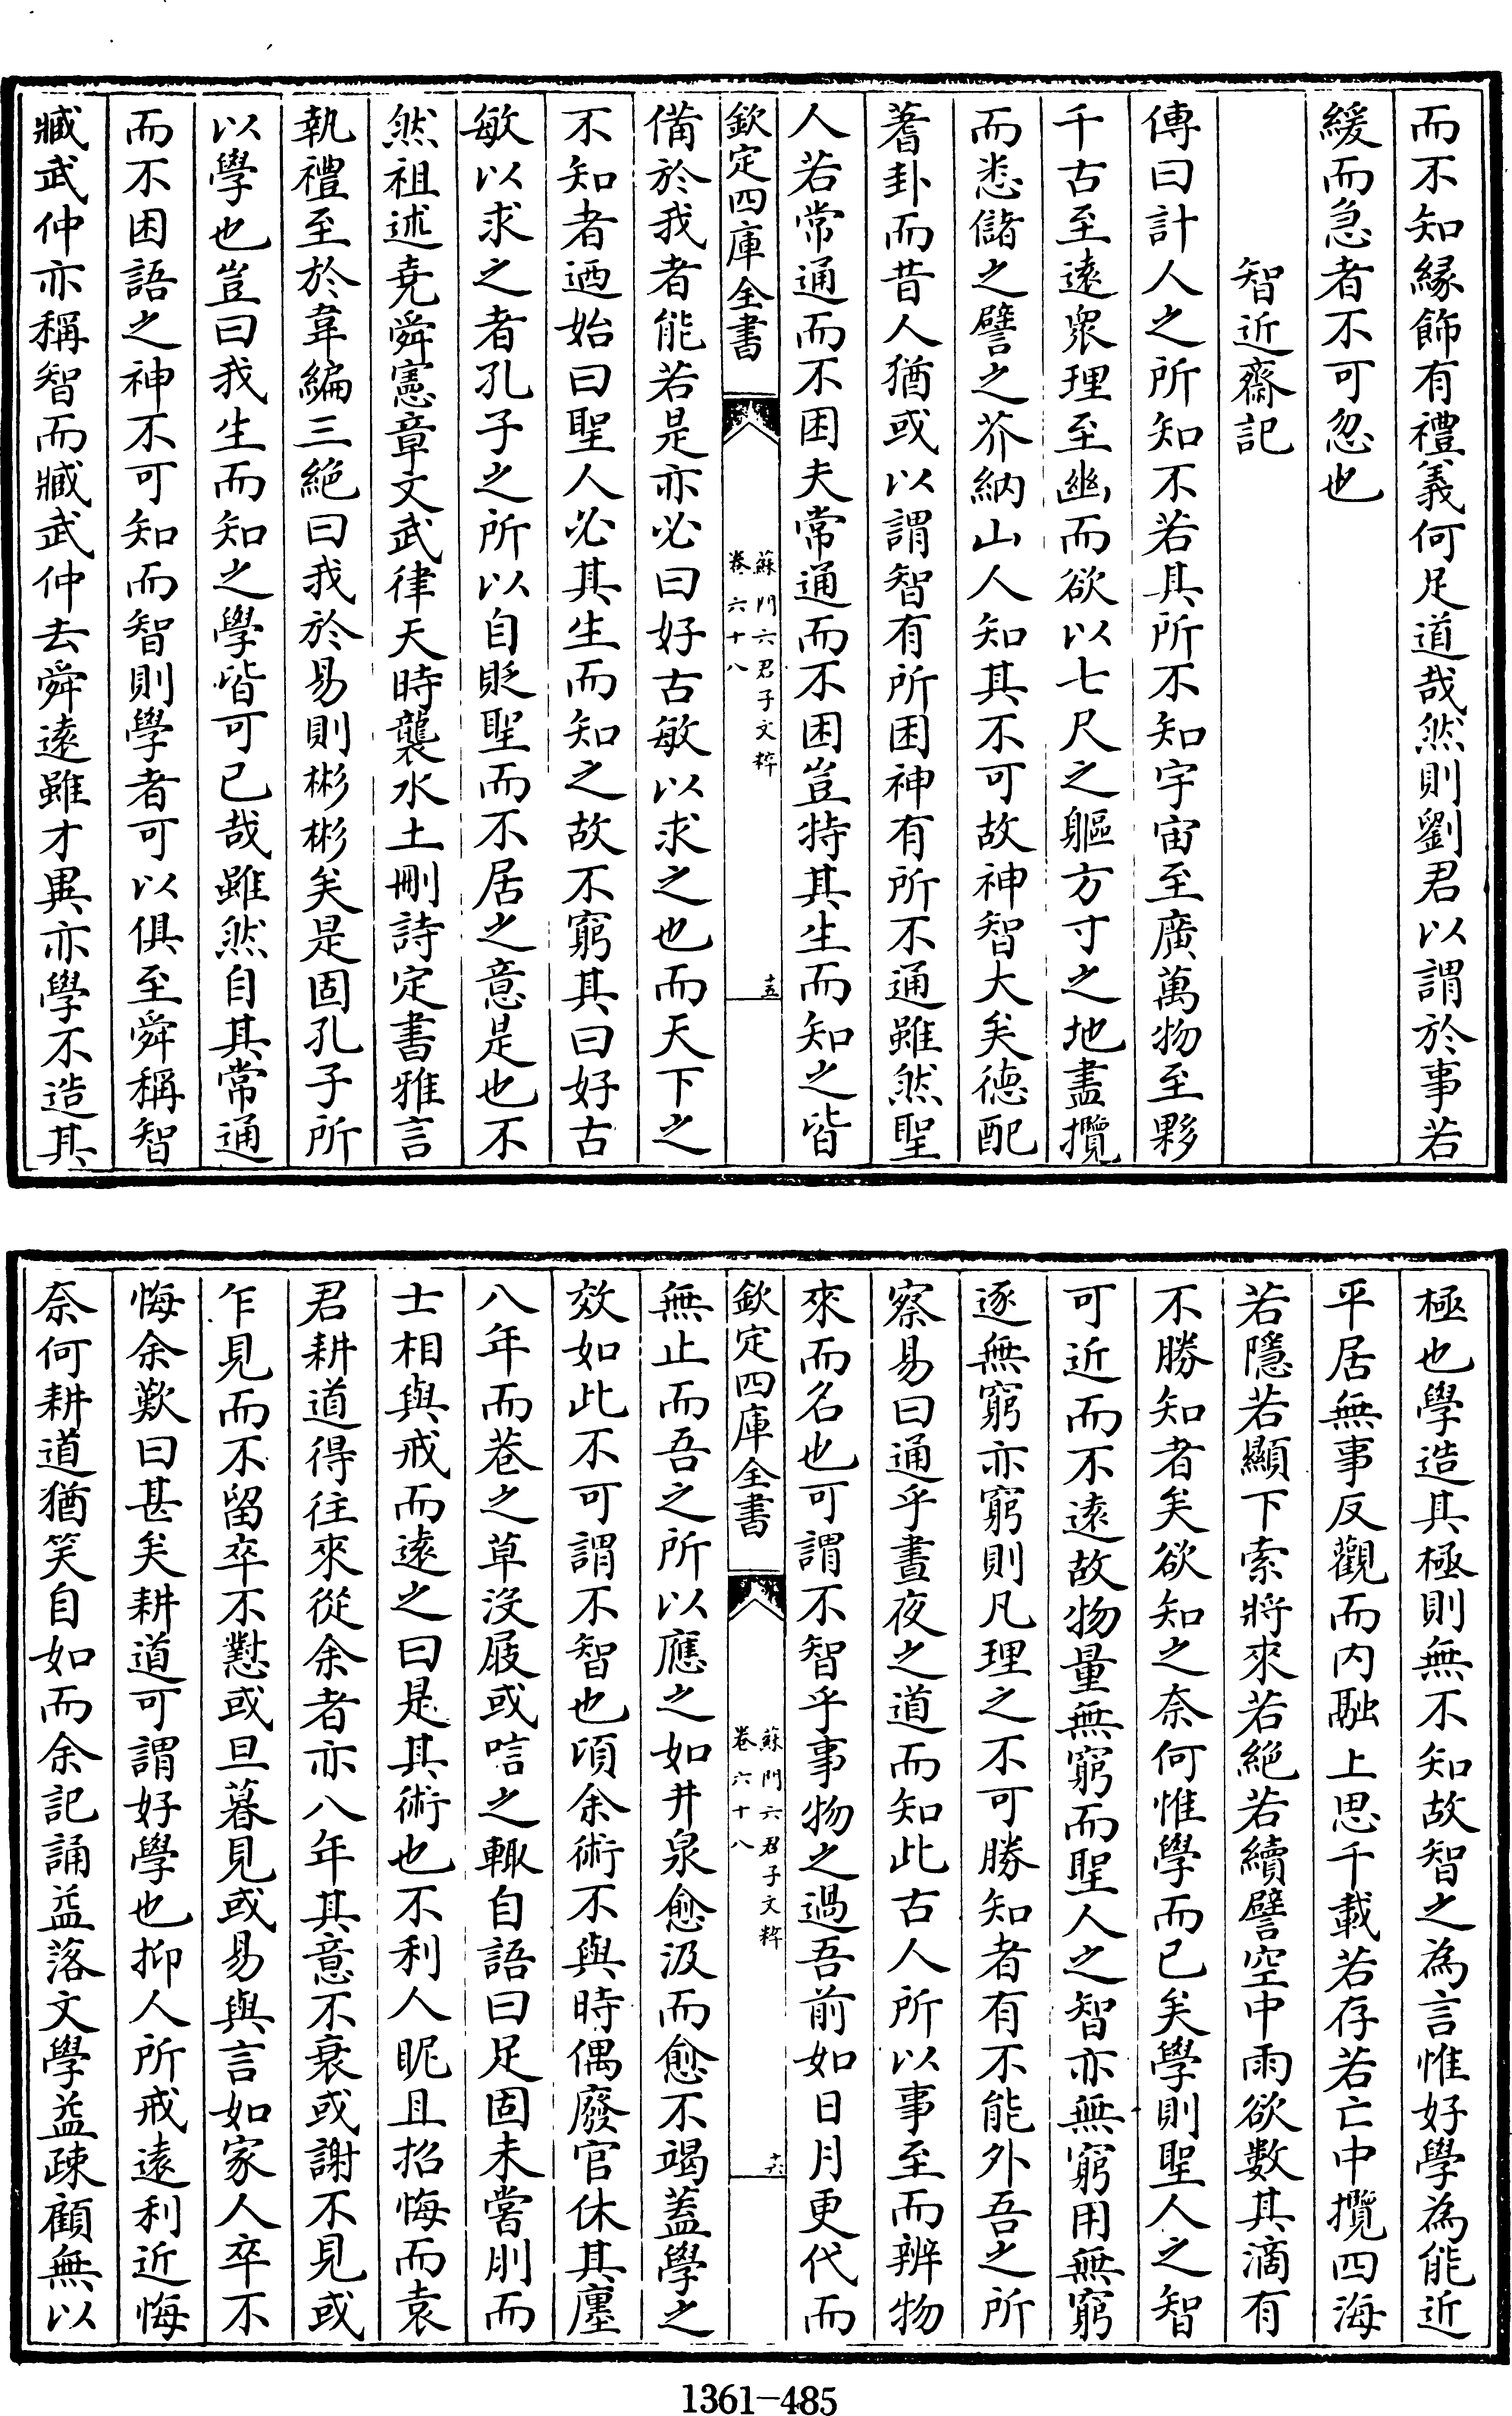 而不知縁飾有禮義何足道哉然則劉君以謂於事若
緩而急者不可忽也
智近齋記
傳曰計人之所知不若其所不知宇宙至廣萬物至夥
千古至逺衆理至幽而欲以七尺之軀方寸之地盡攬
而悉儲之譬之芥納山人知其不可故神智大矣徳配
蓍卦而昔人猶或以謂智有所困神有所不通雖然聖
人若常通而不困夫常通而不困豈特其生而知之皆
欽定四庫全書
蘇門六君子文粹
卷六十八
十五
備於我者能若是亦必曰好古敏以求之也而天下之
不知者迺始曰聖人必其生而知之故不窮其曰好古
敏以求之者孔子之所以自貶聖而不居之意是也不
然祖述尭舜憲章文武律天時襲水土刪詩定書雅言
執禮至於韋編三絶曰我於易則彬彬矣是固孔子所
以學也豈曰我生而知之學皆可已哉雖然自其常通
而不困語之神不可知而智則學者可以俱至舜稱智
臧武仲亦稱智而臧武仲去舜逺雖才異亦學不造其
極也學造其極則無不知故智之為言惟好學為能近
平居無事反觀而内融上思千載若存若亡中攬四海
若隱若顯下索將來若絶若續譬空中雨欲數其滴有
不勝知者矣欲知之奈何惟學而已矣學則聖人之智
可近而不逺故物量無窮而聖人之智亦無窮用無窮
逐無窮亦窮則凡理之不可勝知者有不能外吾之所
察易曰通乎晝夜之道而知此古人所以事至而辨物
來而名也可謂不智乎事物之過吾前如日月更代而
欽定四庫全書
蘇門六君子文粹
卷六十八
十六
無止而吾之所以應之如井泉愈汲而愈不竭蓋學之
效如此不可謂不智也頃余術不與時偶廢官休其廛
八年而巷之草沒屐或唁之輙自語曰足固未嘗刖而
士相與戒而逺之曰是其術也不利人昵且招悔而袁
君耕道得往來從余者亦八年其意不衰或謝不見或
乍見而不留卒不懟或旦暮見或易與言如家人卒不
悔余歎曰甚矣耕道可謂好學也抑人所戒逺利近悔
奈何耕道猶笑自如而余記誦益落文學益疎顧無以
1361-485